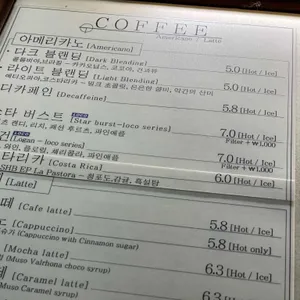 COFFEE
Americano Latte
아메리카노 [Americano]
다크 블랜딩 [Dark Blending] 5.0 [Hot / Ice]
라이트 블랜딩 [Light Blending] 5.0 [Hot / Ice]
디카페인 [Decaffeine] 5.8 [Hot / Ice]
스타 버스트 [Star burst-loco series] 7.0 [Hot / Ice]
Filter + ₩1,000
건 [Logan - loco series] 7.0 [Hot / Ice]
Filter + ₩1,000
타리카 [Costa Rica] 6.0 [Hot / Ice]
SHB EP La Pastora - 청포도,감귤, 흑설탕
[Latte]
떼 [Cafe latte] 5.8 [Hot / Ice]
[Cappuccino] 5.8 [Hot only]
(Cappuccino with Cinnamon sugar)
[Mocha latte] 6.3 [Hot / Ice]
Muso Valrhona choco syrup)
[Caramel latte] 6.3 [Hot / Ice]
Muso Caramel syrup)